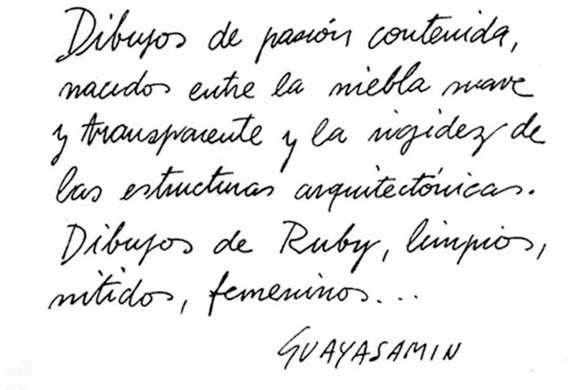 Dibujos de pasión contenida,
nacidos entre la niebla suave
y transparente y la rigidez de
las estructuras arquitectónicas.
Dibujos de Ruby, limpios,
nitidos, femeninos...
GUAYASAMIN